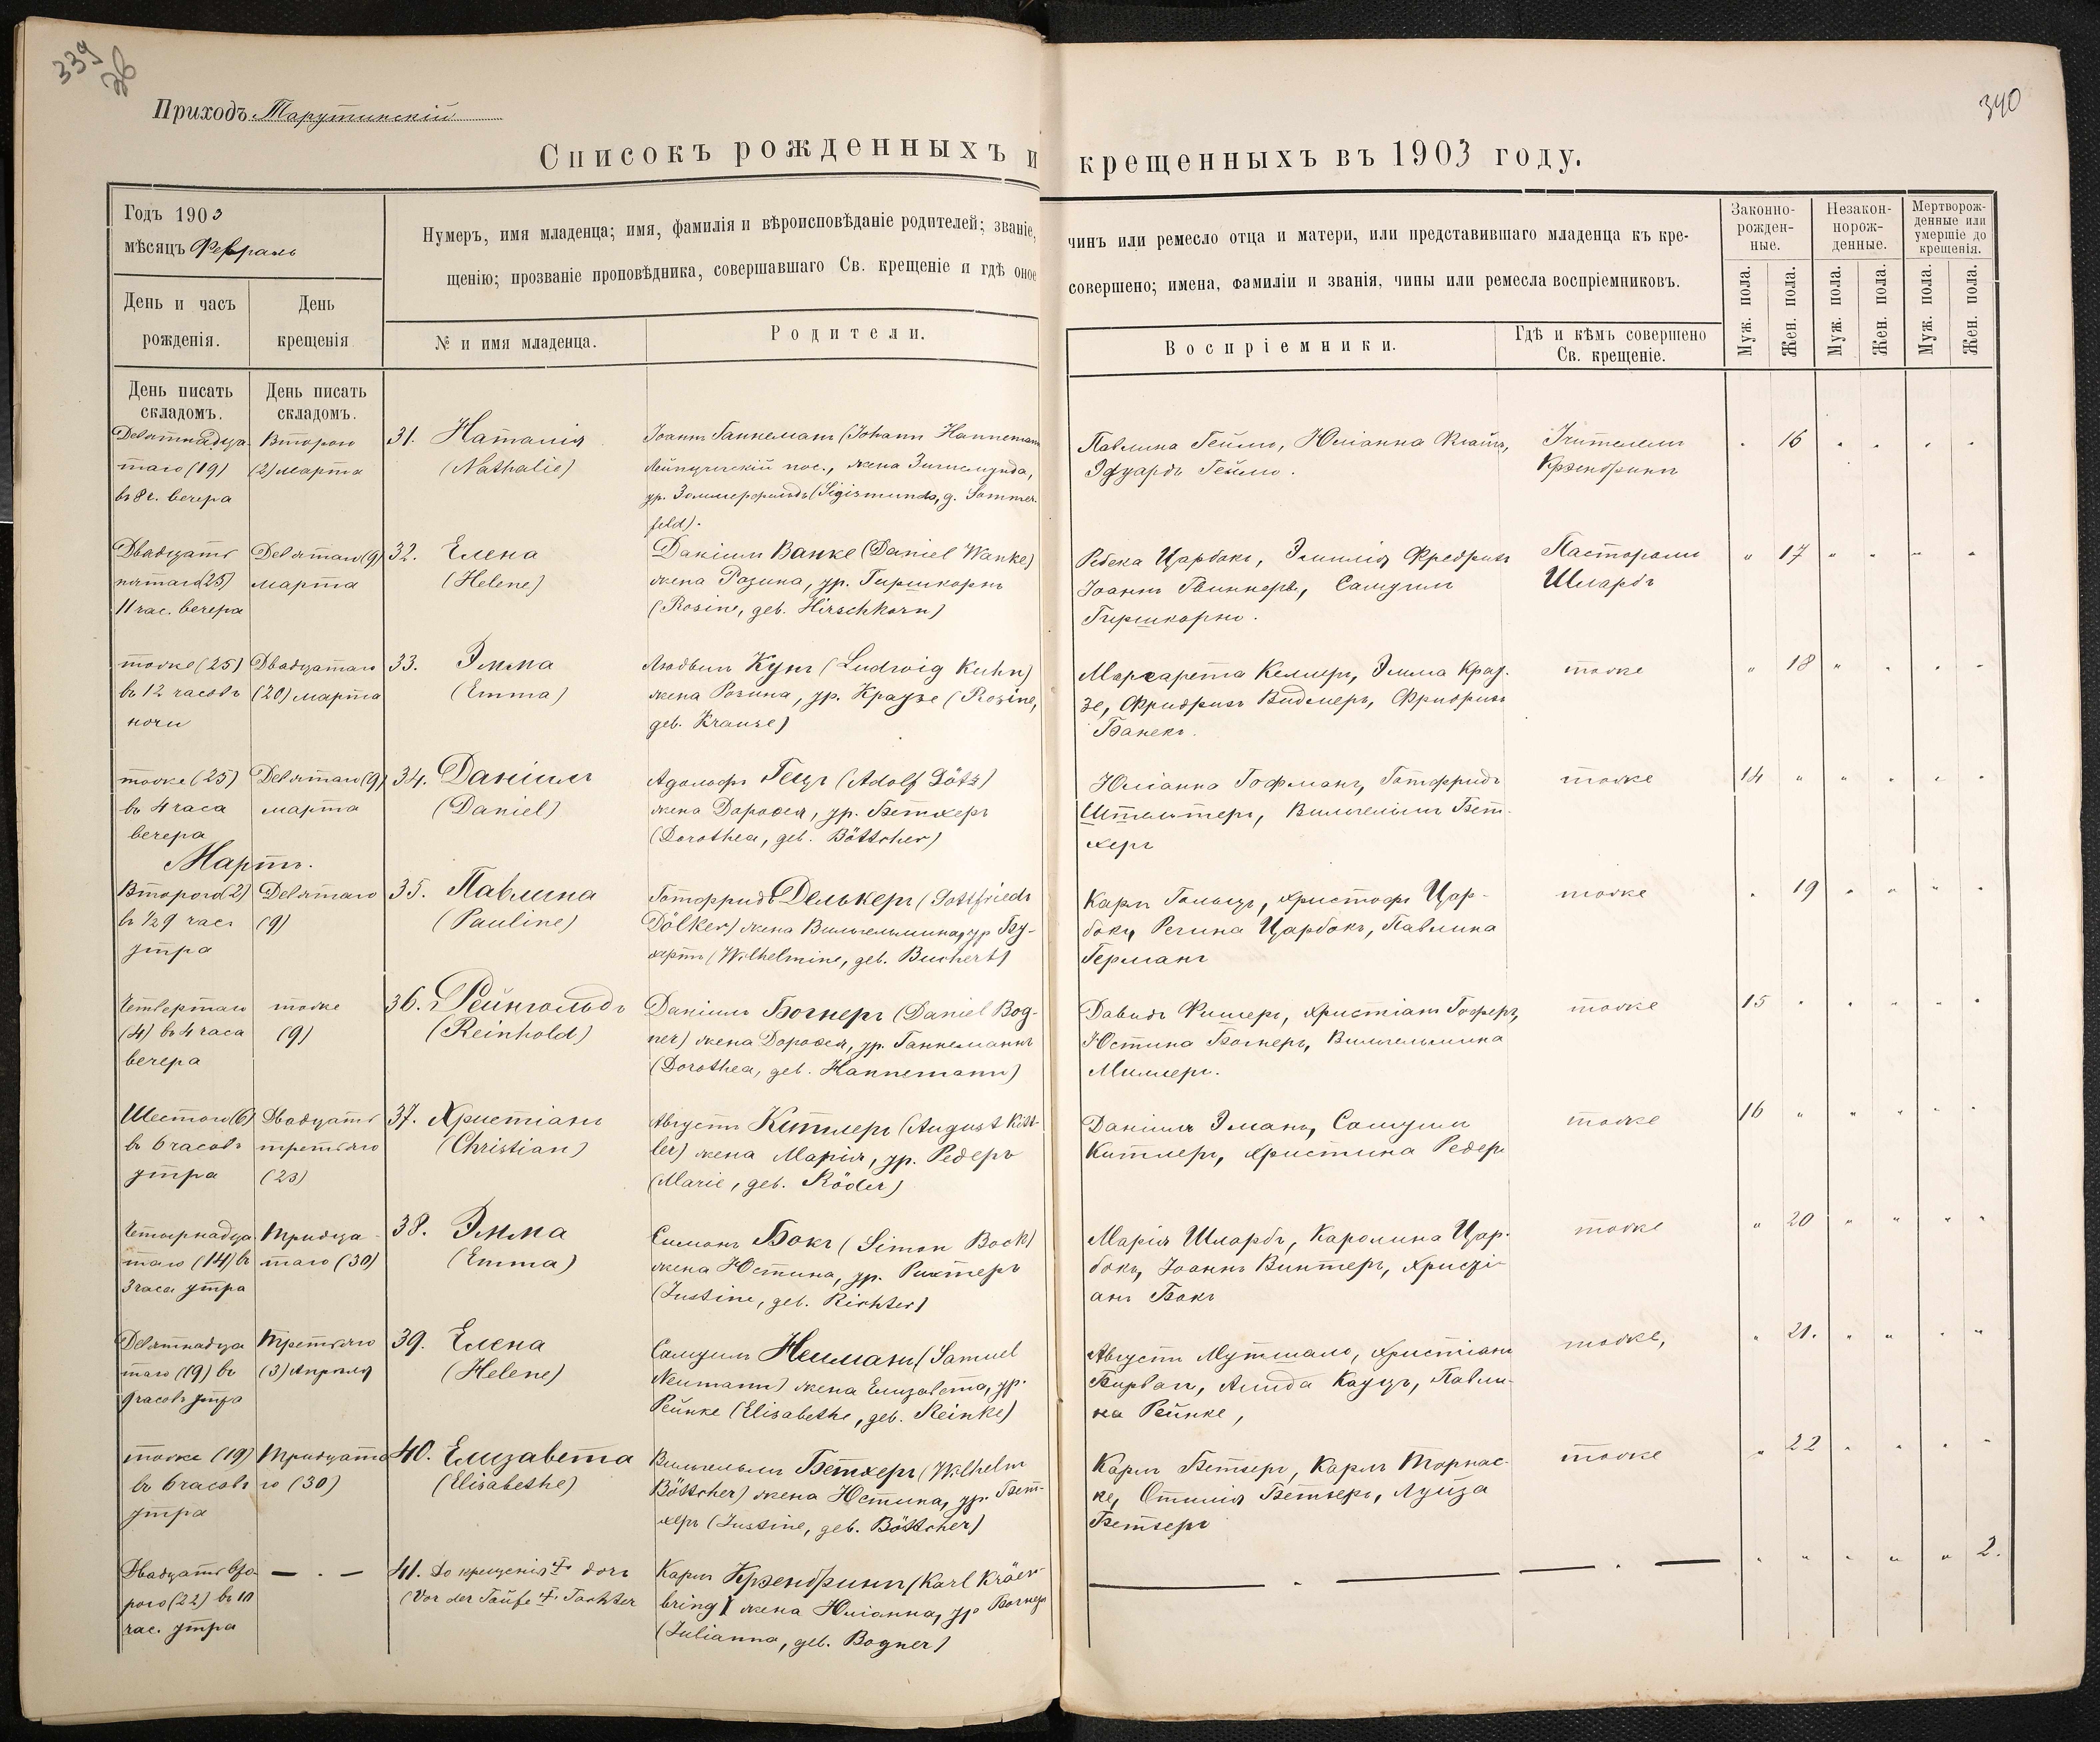 339
340
Приходъ Тарутинскій
Списокъ рожденныхъ и крещенныхъ въ 1903 году.
Годъ 1903
мѣсяцъ Февраль
День и часъ рожденія.
День крещенія
Нумеръ, имя младенца; имя, фамилія и вѣроисповѣданіе родителей; званіе, чинъ или ремесло отца и матери, или представившаго младенца къ кре-
щенію; прозваніе проповѣдника, совершавшаго Св. крещеніе и гдѣ оное совершено; имена, фамиліи и званія, чины или ремесла воспріемниковъ.
№ и имя младенца.
Родители.
Воспріемники.
Гдѣ и кѣмъ совершено
Св. крещеніе.
Законно-
рожден-
ные.
Незакон-
норож-
денные.
Мертворож-
денные или
умершіе до
крещенія.
Муж. пола.
Жен. пола.
Муж. пола.
Жен. пола.
Муж. пола.
Жен. пола.
День писать
складомъ.
День писать
складомъ.
Девятнадца-
таго (19)
въ 8 ч. вечера
Второго
(2) марта
31. Наталія
(Nathalie)
Іоаннъ Ганнеманъ (Johann Hannemann
Лейпцигскій пос., жена Зигисмунда,
ур. Зоммерфельдъ (Sigismunda, g. Sommer-
feld).
Павлина Гейло, Юліанна Клайтъ,
Эдуардъ Гейло.
Учителемъ
Крэенбринкъ
16
Двадцать
пятаго (25)
11 час. вечера
Девятаго (9)
марта
32. Елена
(Helene)
Даніилъ Ванке (Daniel Wanke)
жена Розина, ур. Гиршкорнъ
(Rosine, geb. Hirschkorn)
Ребека Царбокъ, Эмилія Фредрихъ
Іоаннъ Гвиннеръ, Самуилъ
Гиршкорнъ.
Пасторомъ
Шларбъ
17
тоже (25)
въ 12 часовъ
ночи
Двадцатаго
(20) марта
33. Эмма
(Emma)
Людвигъ Кунъ (Ludwig Kuhn)
жена Розина, ур. Краузе (Rosine,
geb. Krause)
Маргарета Келлеръ, Эмма Крау-
зе, Фридрихъ Видмеръ, Фридрихъ
Банекъ.
тоже
18
тоже (25)
въ 4 часа
вечера
Девятаго (9)
марта
34. Даніилъ
(Daniel)
Адольфъ Гецъ (Adolf Götz)
жена Доротея, ур. Бетхеръ
(Dorothea, geb. Böttcher)
Юліанна Гофманъ, Готфридъ
Штельтеръ, Вильгельмъ Бет-
херъ
тоже
14
Мартъ.
Второго (2)
въ ½9 час.
утра
Девятаго
(9)
35. Павлина
(Pauline)
Готфридъ Делькеръ (Gottfried
Dölker) жена Вильгельмина, ур Бу-
хертъ (Wilhelmine, geb. Buchert)
Карлъ Гольцъ, Христофъ Цар-
бокъ, Регина Царбокъ, Павлина
Германъ
тоже
19
Четвертаго
(4) въ 4 часа
вечера
тоже
(9)
36. Рейнгольдъ
(Reinhold)
Даніилъ Богнеръ (Daniel Bog-
ner) жена Доротея, ур. Ганнеманнъ
(Dorothea, geb. Hannemann)
Давидъ Фишеръ, Христіанъ Гофферъ,
Юстина Богнеръ, Вильгельмина
Миллеръ.
тоже
15
Шестого (6)
въ 6 часовъ
утра
Двадцать
третьяго
(23)
37. Христіанъ
(Christian)
Августъ Китлеръ (August Kitt-
ler) жена Марія, ур. Редеръ
(Marie, geb. Röder)
Даніилъ Эманъ, Самуилъ
Китлеръ, Христина Редеръ
тоже
16
Четырнадца
таго (14) въ
3 часа утра
Тридца-
таго (30)
38. Эмма
(Emma)
Симонъ Бокъ (Simon Bock)
жена Юстина, ур. Рихтеръ
(Justine, geb. Richter)
Марія Шларбъ, Каролина Цар-
бокъ, Іоаннъ Винтеръ, Христі-
анъ Бокъ
тоже
20
Девятнадца
таго (19) въ
9 часовъ утра
Третьяго
(3) Апреля
39. Елена
(Helene)
Самуилъ Нейманъ (Samuel
Neumann) жена Елизавета, ур.
Рейнке (Elisabethe, geb. Reinke)
Августъ Мутшалъ, Христіанъ
Бирвагъ, Алида Кауцъ, Павли-
на Рейнке,
тоже,
21.
тоже (19)
въ 6 часовъ
утра
Тридцата
го (30)
40. Елизавета
(Elisabethe)
Вильгельмъ Бетхеръ (Wilhelm
Böttcher) жена Юстина, ур. Бет-
херъ (Justine, geb. Böttcher)
Карлъ Бетхеръ, Карлъ Торнас-
ке, Отилія Бетхеръ, Луиза
Бетхеръ
тоже
22
Двадцать вто-
рого (22) въ 10
час. утра
— . —
41. До крещенія † дочь
(Vor der Taufe †. Tochter
Карлъ Крэенбринкъ (Karl Kräen-
bring) жена Юліанна, ур Богнеръ
(Julianna, geb. Bogner)
2.